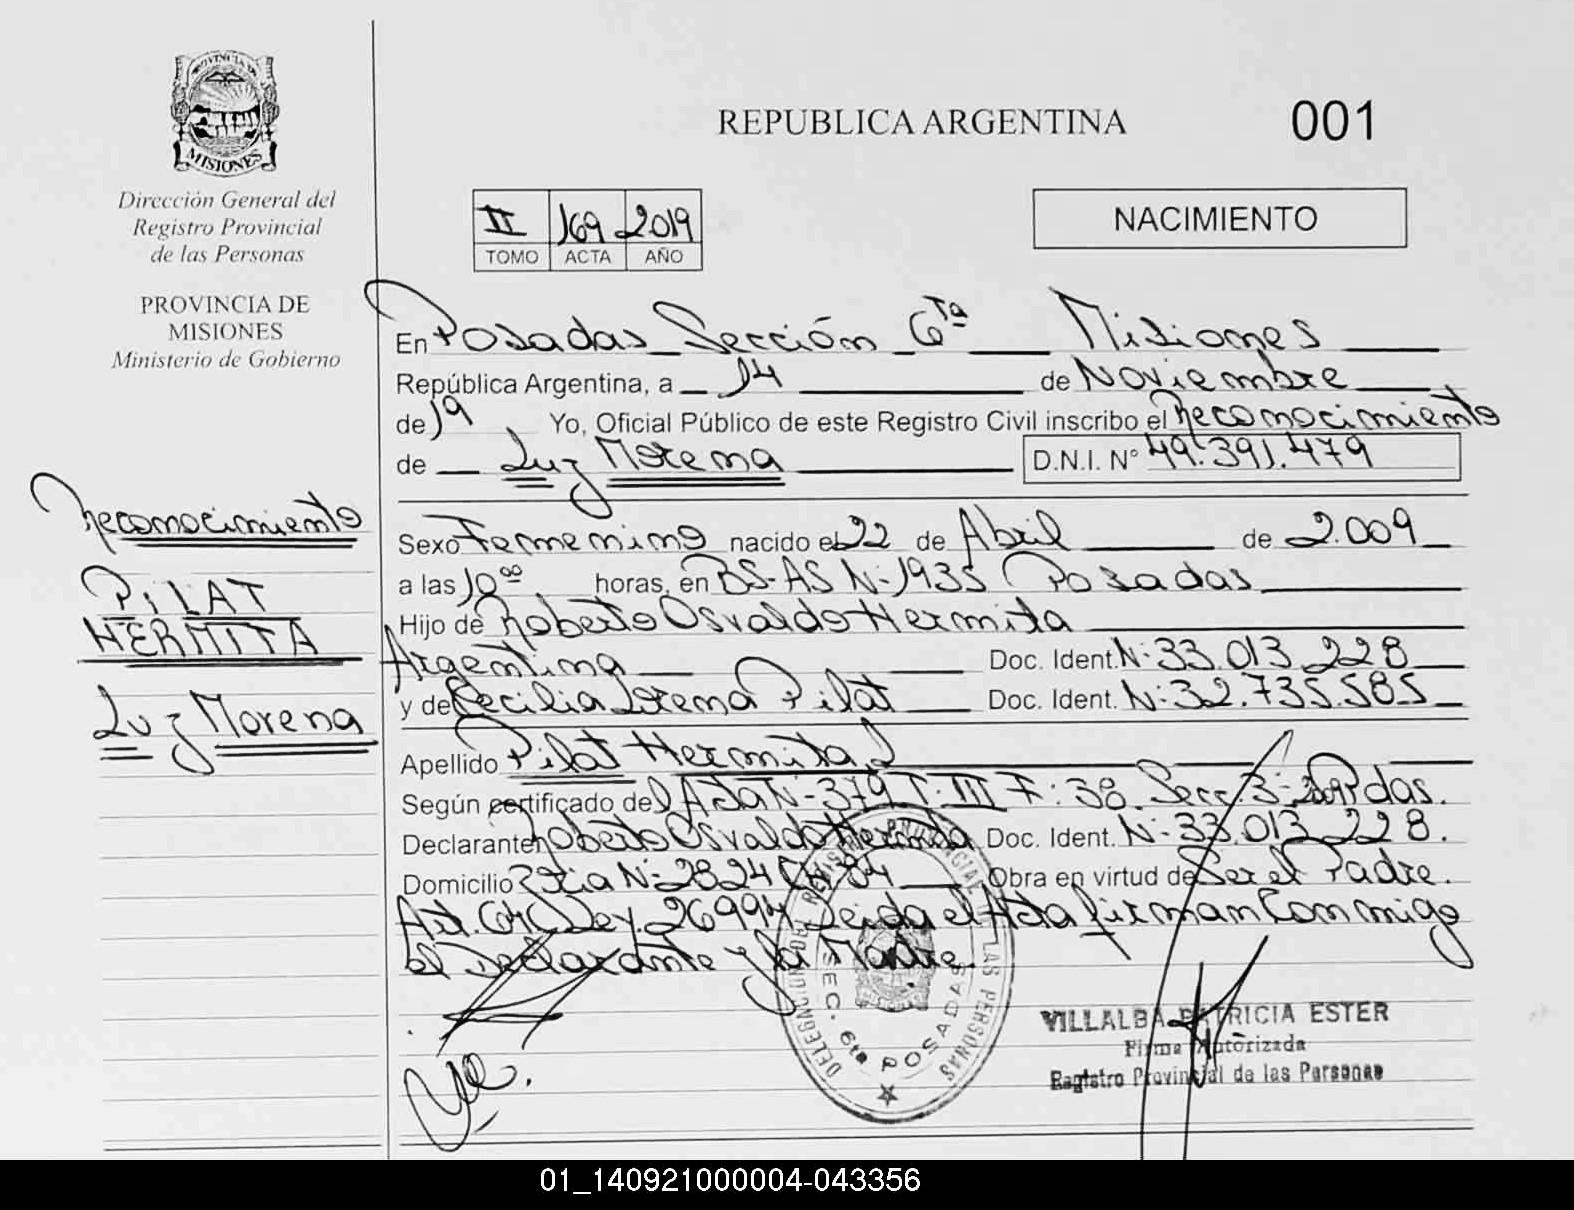 PROVINCIA DE
MISIONES
Dirección General del
Registro Provincial
de las Personas
PROVINCIA DE
MISIONES
Ministerio de Gobierno
Reconocimiento
PiLAT
HERMITA
Luz Morena
REPUBLICA ARGENTINA
001
II 169 2019
TOMO ACTA AÑO
NACIMIENTO
En Posadas Sección 6ta Misiones
República Argentina, a 14 de Noviembre
de 19 Yo, Oficial Público de este Registro Civil inscribo el Reconocimiento
de Luz Morena D.N.I. Nº 49.391.479
Sexo Femenino nacido el 22 de Abril de 2.009
a las 10 00 horas, en BS-AS N-1935 Posadas
Hijo de Roberto Osvaldo Hermita
Argentina Doc. Ident. N: 33.013.228
y de Cecilia Lorena Pilat Doc. Ident. N: 32.735.585
Apellido Pilat Hermita
Según certificado del Acta N-379 T: III F: 38. Secc. 3- 2009 Pdas.
Declarante Roberto Osvaldo Hermita Doc. Ident. N-33.013.228.
Domicilio N-2824 84 Obra en virtud de Ser el Padre.
Art. Ley. 26994 Leida el Acta firman Conmigo
el Declarante y la Madre.
DELEGACION REGISTRO PROVINCIAL DE LAS PERSONAS
SEC. 6ta POSADAS
VILLALBA PATRICIA ESTER
Firma Autorizada
Registro Provincial de las Personas
01_140921000004-043356